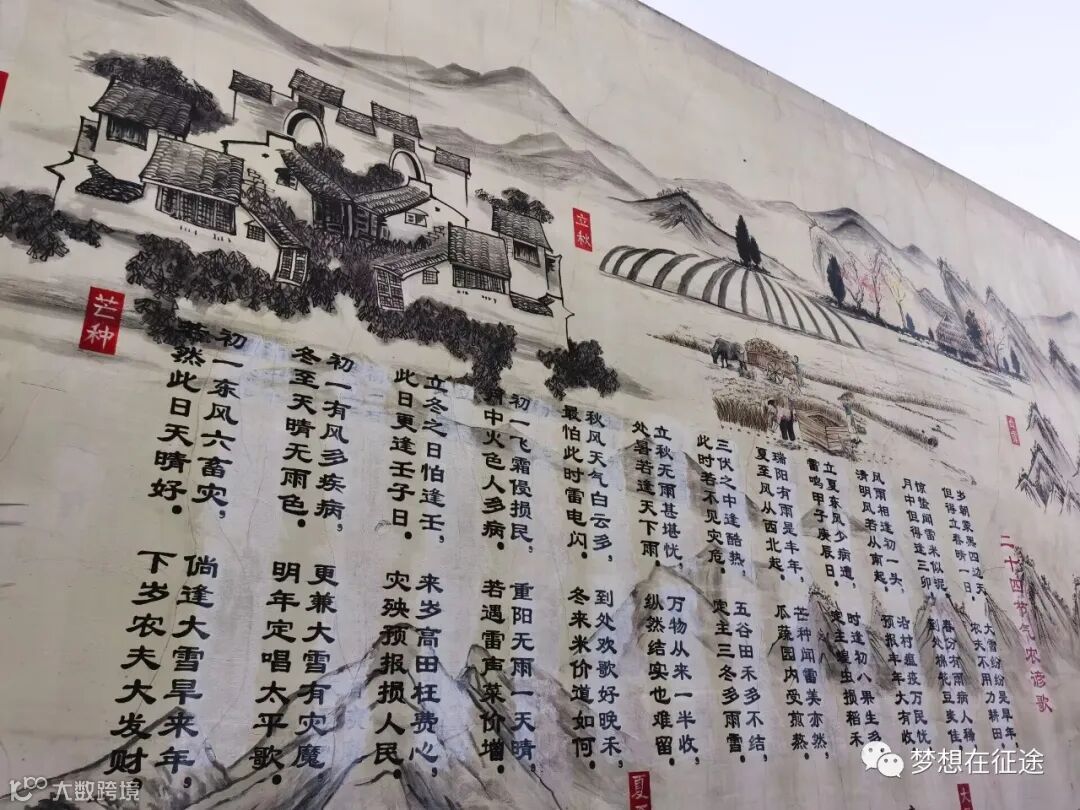 二十四节气农谚歌
岁朝蒙黑四边天,
大雪纷纷是旱年,
但得立春晴一日。
农夫不用力耕田
惊蛰闻雷米似泥,
春分有雨病人稀
月中但得逢三卯,
到处棉花豆麦佳
风雨相逢初一头,
沿村瘟疫万民忧
清明风若从南起,
预报年年大有收
立夏东风少病遭,
时逢初八果生多
雷鸣甲子庚辰日。
定主蝗虫损稻禾
瑞阳有雨是丰年,
芒种闻雷美亦然
夏至风从西北起。
瓜蔬园内受煎熬
三伏之中逢酷热,
五谷田禾多不结,
此时若不见灾危。
定主三冬多雨雪
立秋无雨甚堪忧,
万物从来一半收,
处暑若逢天下雨。
纵然结实也难留。
秋风天气白云多,
到处欢歌好晚禾,
最怕此时雷电闪。
冬来米价道如何。
初一飞霜侵损民,
重阳无雨一天晴,
月中火色人多病。
若遇雷声菜价增。
立冬之日怕逢壬,
来岁高田枉费心,
此日更逢壬子日。
灾殃预报损人民。
初一有风多疾病,
更兼大雪有灾魔,
冬至天晴无雨色。
明年定唱太平歌。
初一东风六畜灾,
倘逢大雪旱来年,
若然此日天晴好。
下岁农夫大发财。
立秋
芒种
夏
梦想在征途
大数跨境